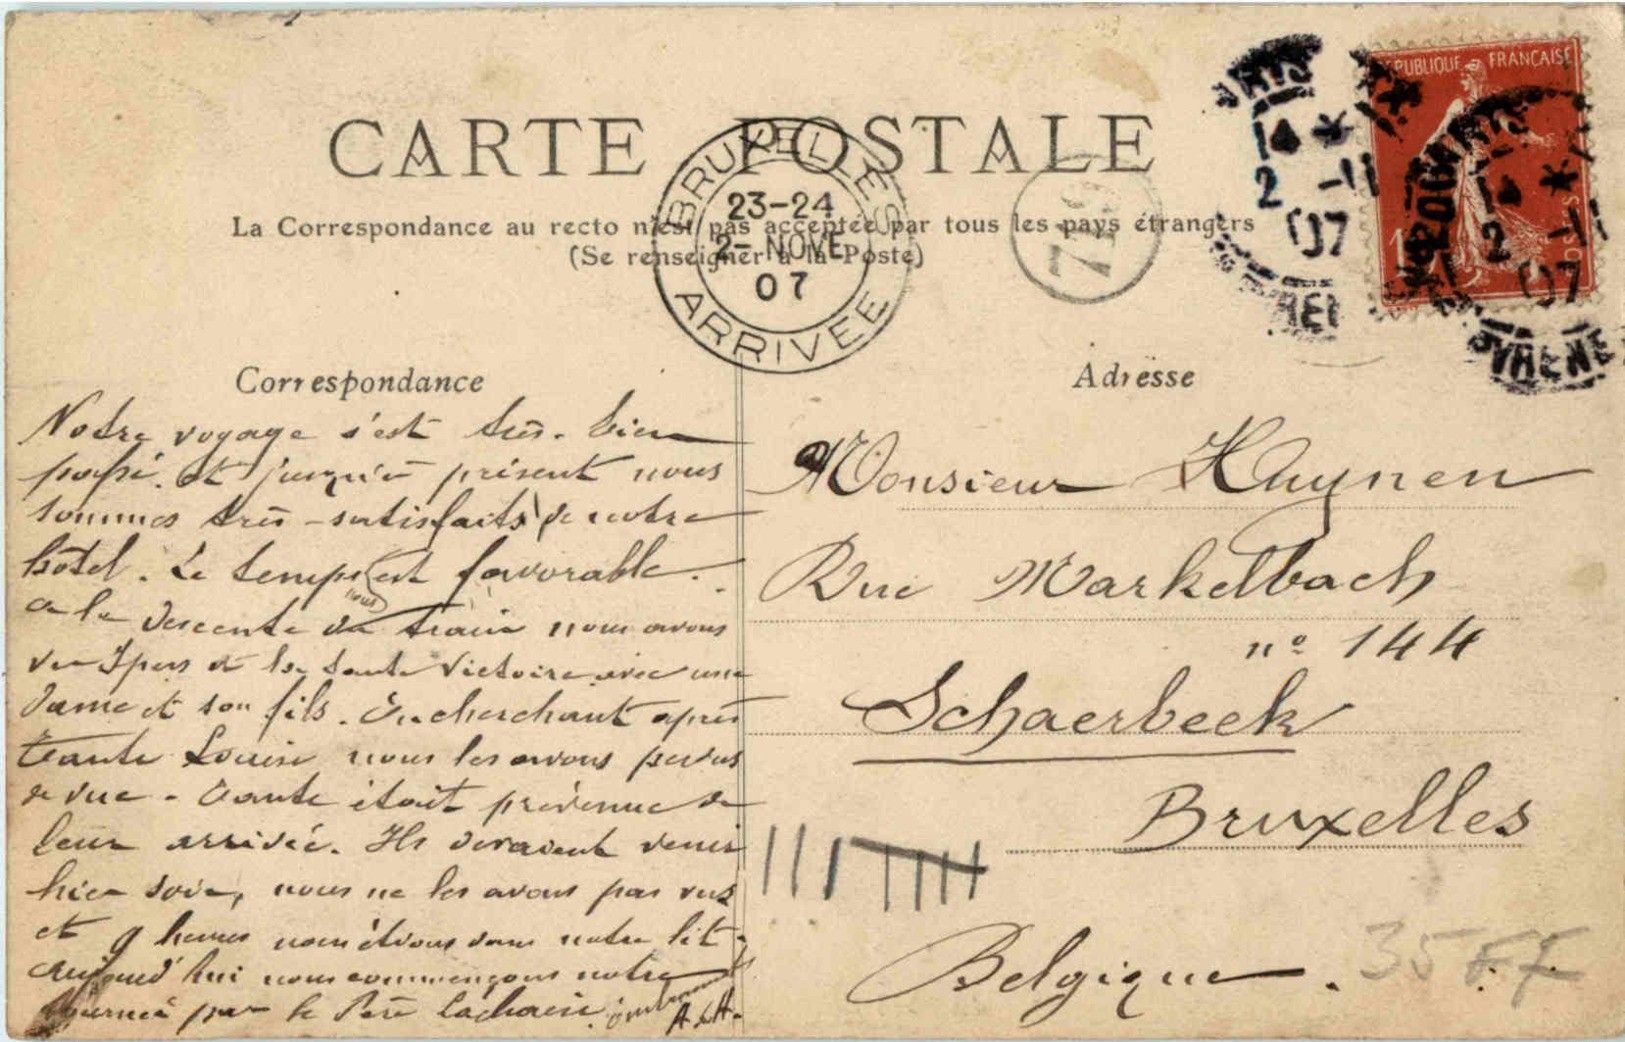 CARTE POSTALE
La Correspondance au recto n'est pas acceptée par tous les pays étrangers
(Se renseigner à la Poste)
BRUXELLES
23-24
2- NOVE
07
ARRIVÉE
7
RÉPUBLIQUE FRANÇAISE
2 -11
07
2 -11
07
Correspondance
Adresse
Notre voyage s'est très-bien
passé. et jusqu'à présent nous
sommes très-satisfaits de notre
hôtel. Le temps est favorable.
a la descente du train nous avons
vu de la tante Victoire avec une
dame et son fils. En cherchant après
tante Louise nous les avons perdus
de vue - Tante était prévenue de
leur arrivée. Ils devaient venir
hier soir, nous ne les avons pas vus
et 9 heures nous étions dans notre lit.
Aujourd'hui nous commençons notre
tournée par le Père Lachaise.
A et A.
Monsieur Huynen
Rue Markelbach
n° 144
Schaerbeek
Bruxelles
Belgique.
35 FF